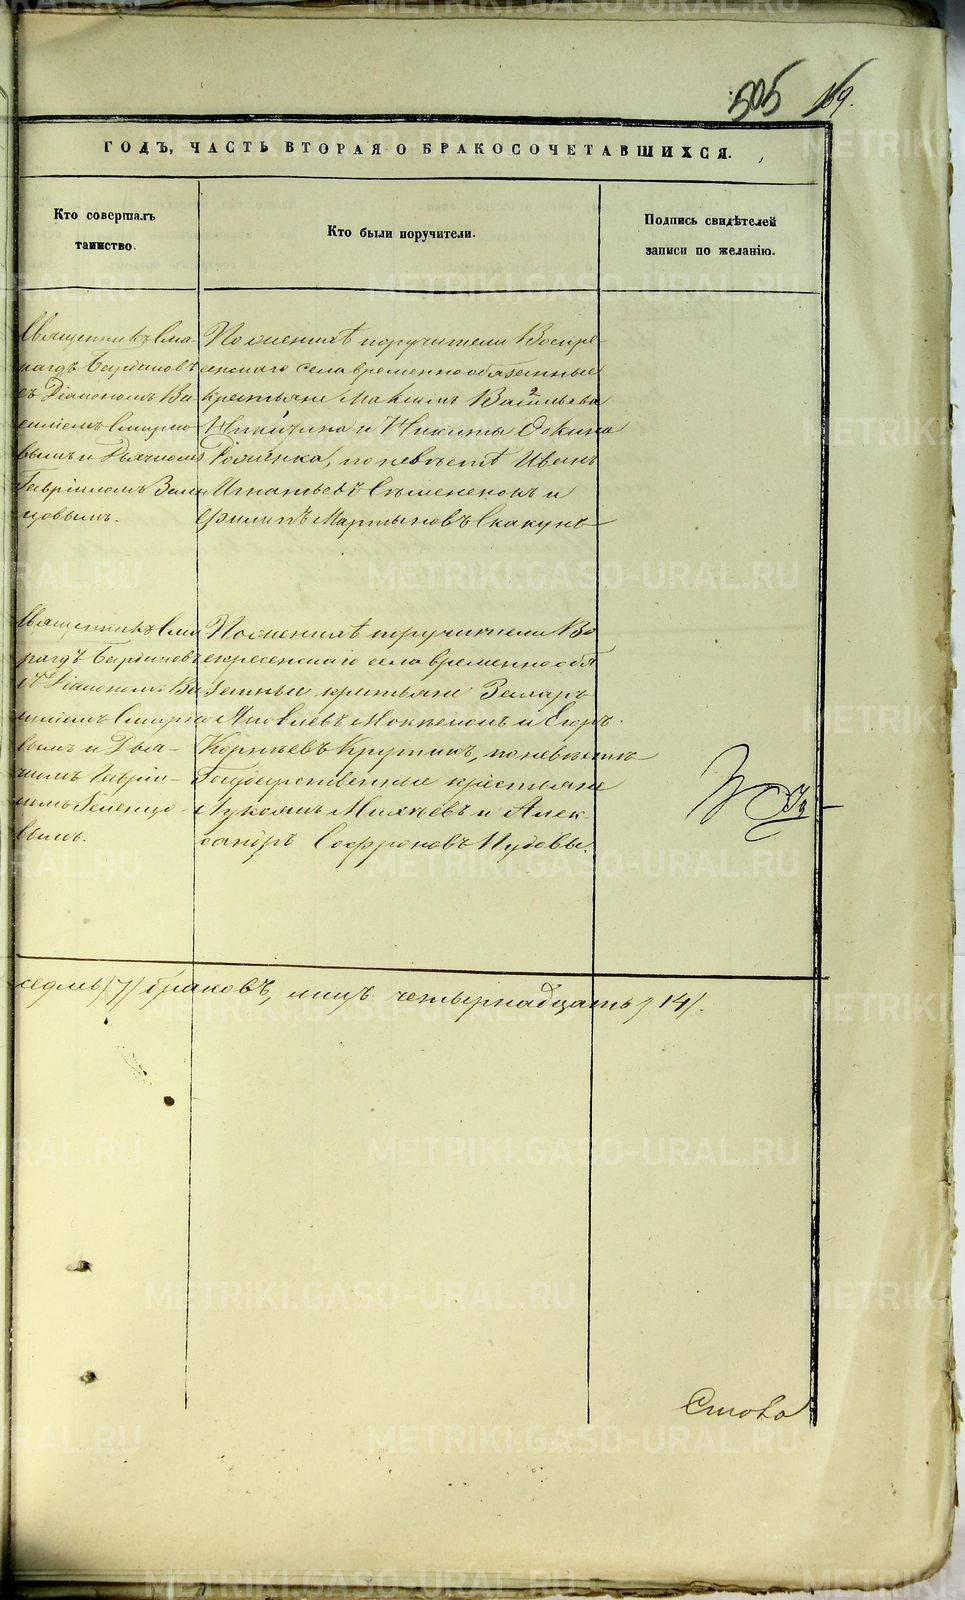 505 169.
ГОДЪ, ЧАСТЬ ВТОРАЯ О БРАКОСОЧЕТАВШИХСЯ.
Кто совершалъ
таинство.
Кто были поручители.
Подпись свидѣтелей
записи по желанію.
Священникъ Сма-
рагдъ
съ Діакономъ Ва
силіемъ Смирно
вымъ и Дьячкомъ
Гавріиломъ
цовымъ.
По женихѣ поручители Воскре-
сенскаго села временнообязанные
крестьяне Максимъ Васильевъ
Никитина и Никита
по невѣстѣ Иванъ
Игнатьевъ и
Филипъ Мартыновъ Скакунъ
Священникъ Сма
рагдъ
съ Діакономъ Ва
силіемъ Смирно
вымъ и Дья-
чкомъ Гавріи-
ломъ
вымъ.
По женихѣ поручители Во
скресенскаго села временнообя
занные крестьяне Захаръ
Яковлевъ и Егоръ
Корнѣевъ Крутикъ, по невѣстѣ
Государственные крестьяне
Лукоянъ Михѣевъ и Алек
сандръ Софроновъ
седмь /7/ браковъ, лицъ четырнадцать /14/.
METRIKI.GASO-URAL.RU